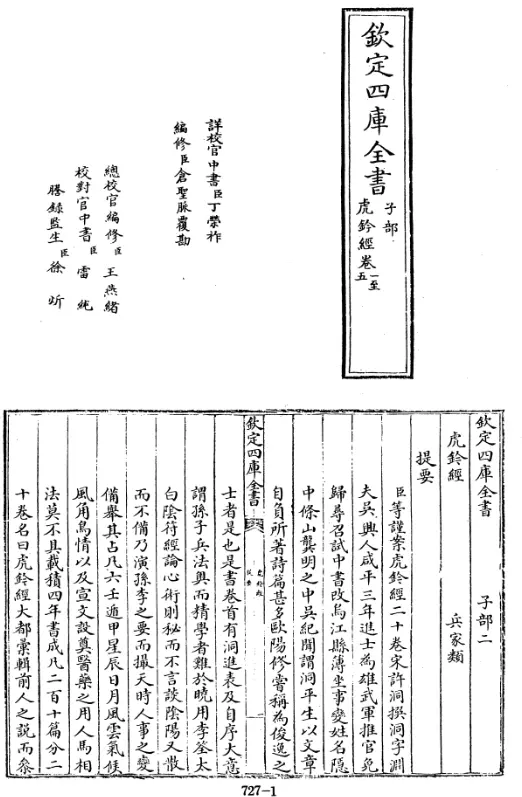 欽定四庫全書
子部
虎鈐經卷一至五
詳校官中書臣丁榮祚
編修臣倉聖脈覆勘
總校官編修臣王燕緒
校對官中書臣雷純
謄錄監生臣徐炘
欽定四庫全書 子部二
虎鈐經 兵家類
提要
臣等謹案虎鈐經二十卷宋許洞撰洞字淵
夫吳興人咸平三年進士為雄武軍推官免
歸尋召試中書改烏江縣簿坐事變姓名隱
中條山龔明之中吳紀聞謂洞平生以文章
自負所著詩篇甚多歐陽修嘗稱為俊逸之
欽定四庫全書
士者是也是書卷首有洞進表及自序大意
謂孫子兵法奧而精學者難於曉用李筌太
白陰符經論心術則秘而不言談陰陽又散
而不備乃演孫李之要而撮天時人事之變
備舉其占凡六壬遁甲星辰日月風雲氣候
風角鳥情以及宣文設奠醫藥之用人馬相
法莫不具載積四年書成凡二百十篇分二
十卷名曰虎鈐經大都彙輯前人之說而參
727-1